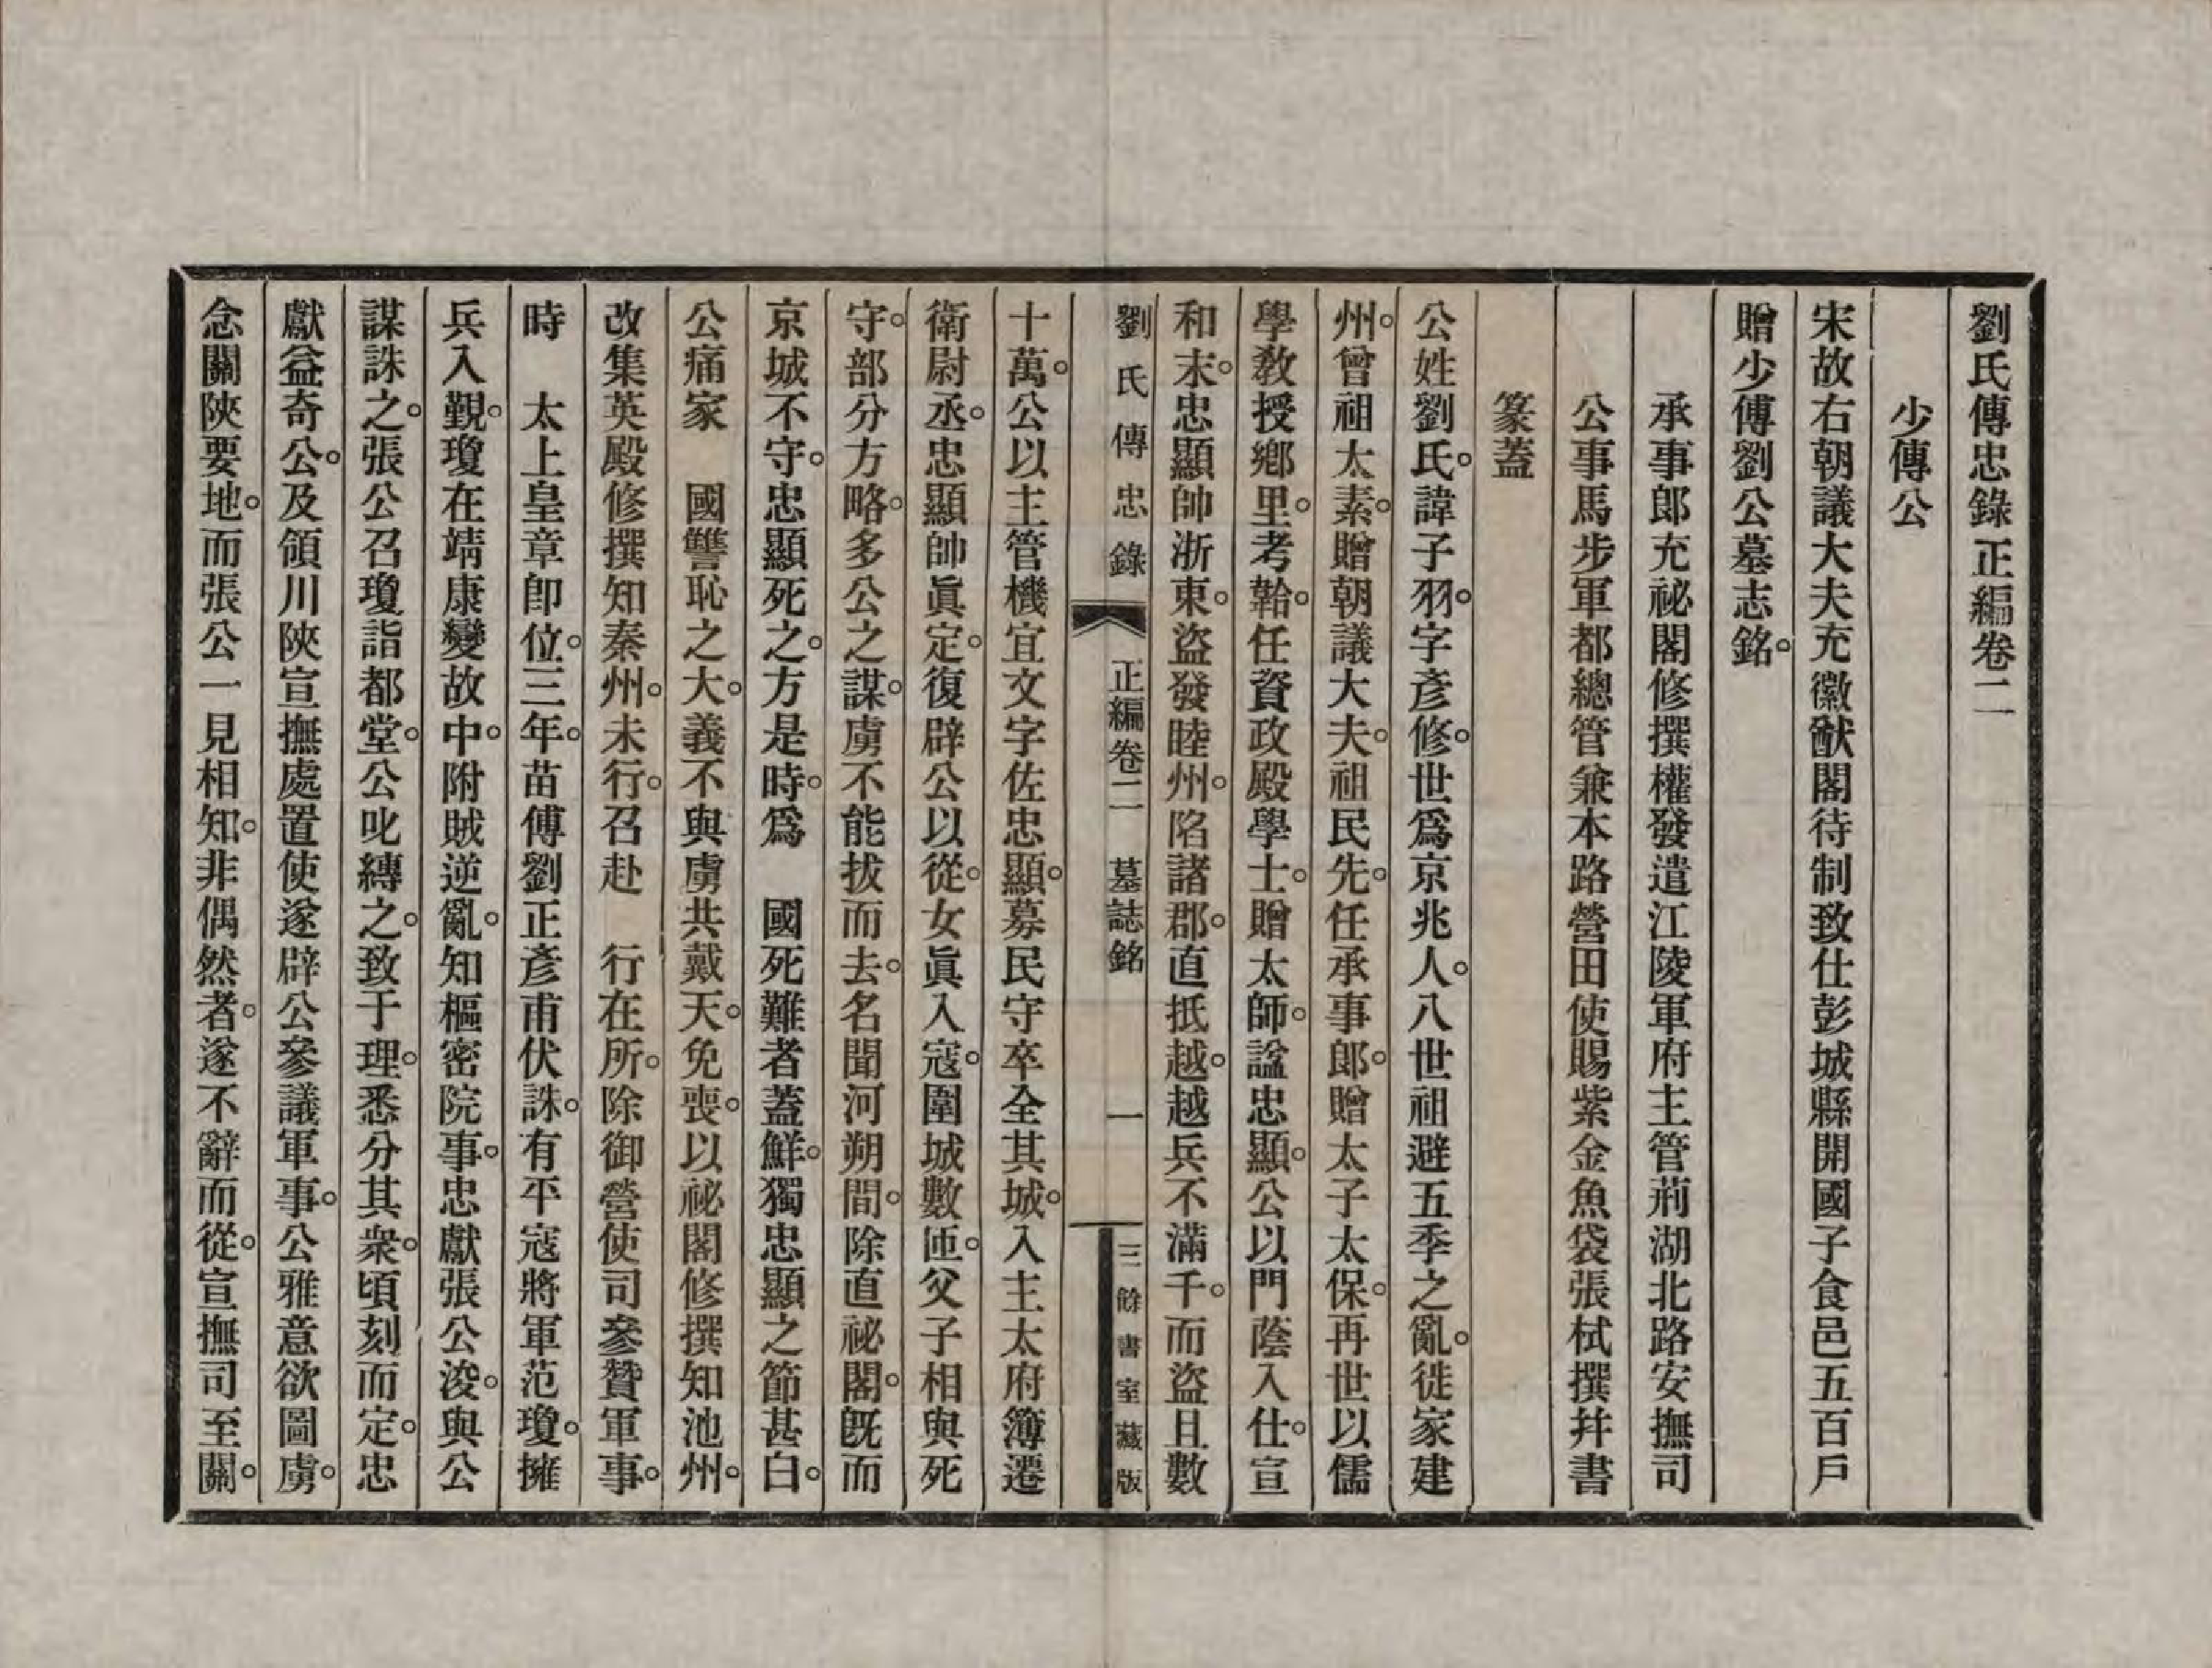 劉氏傳忠錄正編卷二
少傅公
宋故右朝議大夫充徽猷閣待制致仕彭城縣開國子食邑五百戶
贈少傅劉公墓志銘。
承事郎充祕閣修撰權發遣江陵軍府主管荊湖北路安撫司
公事馬步軍都總管兼本路營田使賜紫金魚袋張栻撰幷書
篆蓋
公姓劉氏。諱子羽。字彥修。世爲京兆人。八世祖避五季之亂。徙家建
州。曾祖太素。贈朝議大夫。祖民先。任承事郎。贈太子太保。再世以儒
學敎授鄉里。考韐。任資政殿學士。贈太師。諡忠顯。公以門蔭入仕。宣
和末。忠顯帥浙東。盜發睦州。陷諸郡。直抵越。越兵不滿千。而盜且數
劉氏傳忠錄 正編卷二 墓誌銘 一 三餘書室藏版
十萬。公以主管機宜文字佐忠顯。募民守卒全其城。入主太府簿遷
衛尉丞。忠顯帥眞定。復辟公以從。女眞入寇。圍城數匝。父子相與死
守。部分方略。多公之謀。虜不能拔而去。名聞河朔間。除直祕閣。旣而
京城不守。忠顯死之。方是時。爲 國死難者蓋鮮。獨忠顯之節甚白。
公痛家 國讐恥之大。義不與虜共戴天。免喪。以祕閣修撰知池州。
改集英殿修撰知秦州。未行。召赴 行在所。除御營使司參贊軍事。
時 太上皇章卽位。三年。苗傅劉正彥甫伏誅。有平寇將軍范瓊。擁
兵入覲。瓊在靖康變故中。附賊逆亂。知樞密院事。忠獻張公浚。與公
謀誅之。張公召瓊詣都堂。公叱縛之。致于理。悉分其衆。頃刻而定。忠
獻益奇公。及領川陝宣撫處置使遂辟公參議軍事。公雅意欲圖虜。
念關陝要地。而張公一見相知。非偶然者。遂不辭而從。宣撫司至關。